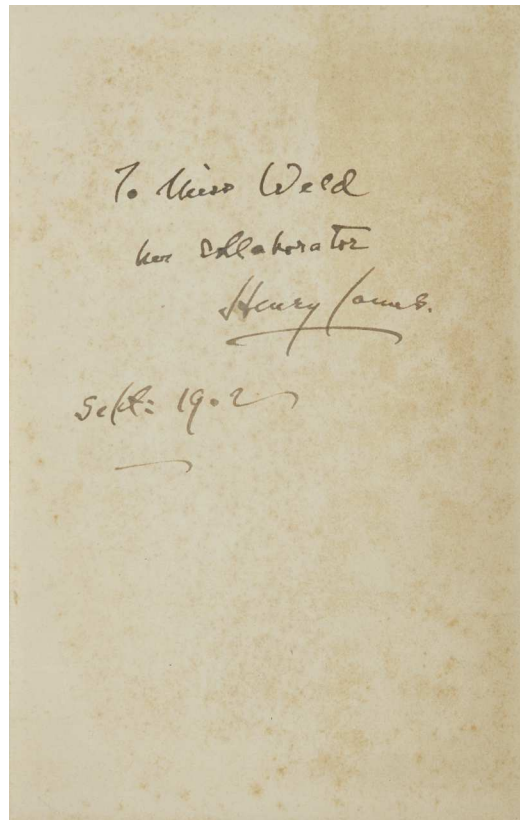 To Miss Weld
her collaborator
Henry James.
Sept: 1902